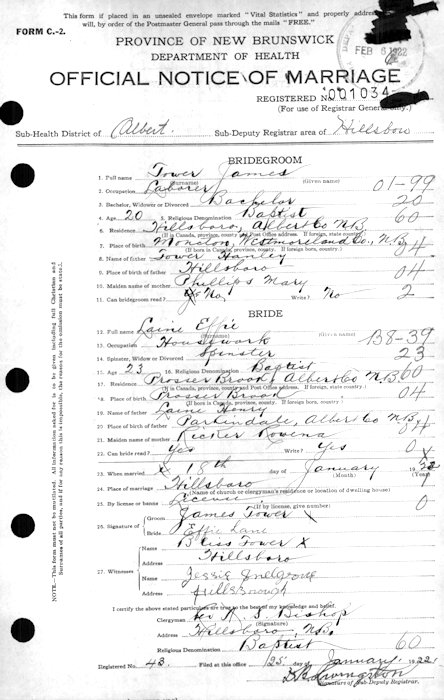 This form if placed in an unsealed envelope marked "Vital Statistics" and properly addressed
will, by order of the Postmaster General pass through the mails "FREE."
FORM C.-2.
FEB 6 1922
PROVINCE OF NEW BRUNSWICK
DEPARTMENT OF HEALTH
OFFICIAL NOTICE OF MARRIAGE
REGISTERED NO. 001034
(For use of Registrar General Only.)
Sub-Health District of Albert. Sub-Deputy Registrar area of Hillsboro
BRIDEGROOM
1. Full name Tower James
(Surname) (Given name)
2. Occupation Laborer 01-99
3. Bachelor, Widower or Divorced Bachelor 20
4. Age 20 5. Religious Denomination Baptist 60
6. Residence Hillsboro, Albert Co N.B.
(If in Canada, province, county and Post Office address. If foreign, state country.)
7. Place of birth Moncton, Westmoreland Co., N.B. 04
(If born in Canada, province, county. If foreign, country.)
8. Name of father Tower Hanley
9. Place of birth of father Hillsboro 04
10. Maiden name of mother Phillips Mary
11. Can bridegroom read? No Write? No 2
BRIDE
12. Full name Laine Effie
(Surname) (Given name)
13. Occupation Housework 138-39
14. Spinster, Widow or Divorced Spinster 23
15. Age 23 16. Religious Denomination Baptist
17. Residence Prosser Brook, Albert Co N.B. 60
(If in Canada, province, county and Post Office address. If foreign, state country.)
18. Place of birth Prosser Brook 04
(If born in Canada, province, county. If foreign, country.)
19. Name of father Laine Henry
20. Place of birth of father Parkindale, Albert Co N.B. 04
21. Maiden name of mother Ricker Rovena
22. Can bride read? Yes Write? Yes 0
23. When married X 18th day of January 1922
(Month) (Year)
24. Place of marriage Hillsboro
(Name of church or clergyman's residence or location of dwelling house)
25. By license or banns License 0
(If by license, give number)
26. Signature of Groom James Tower X
Bride Effie Lane
27. Witnesses Name Bliss Tower X
Address Hillsboro
Name Jessie
Address Hillsborough
I certify the above stated particulars are true to the best of my knowledge and belief.
Clergyman Rev. H. S. Bishop
(Signature)
Address Hillsboro, N.B.
Religious Denomination Baptist 60
Registered No. 43. Filed at this office 25 January 1922
Signature of Sub Deputy Registrar.
NOTE—This form must not be mutilated. All information asked for is to be given including full Christian and
Surnames of all parties, and if for any reason this is impossible, the reason for the omission must be stated.